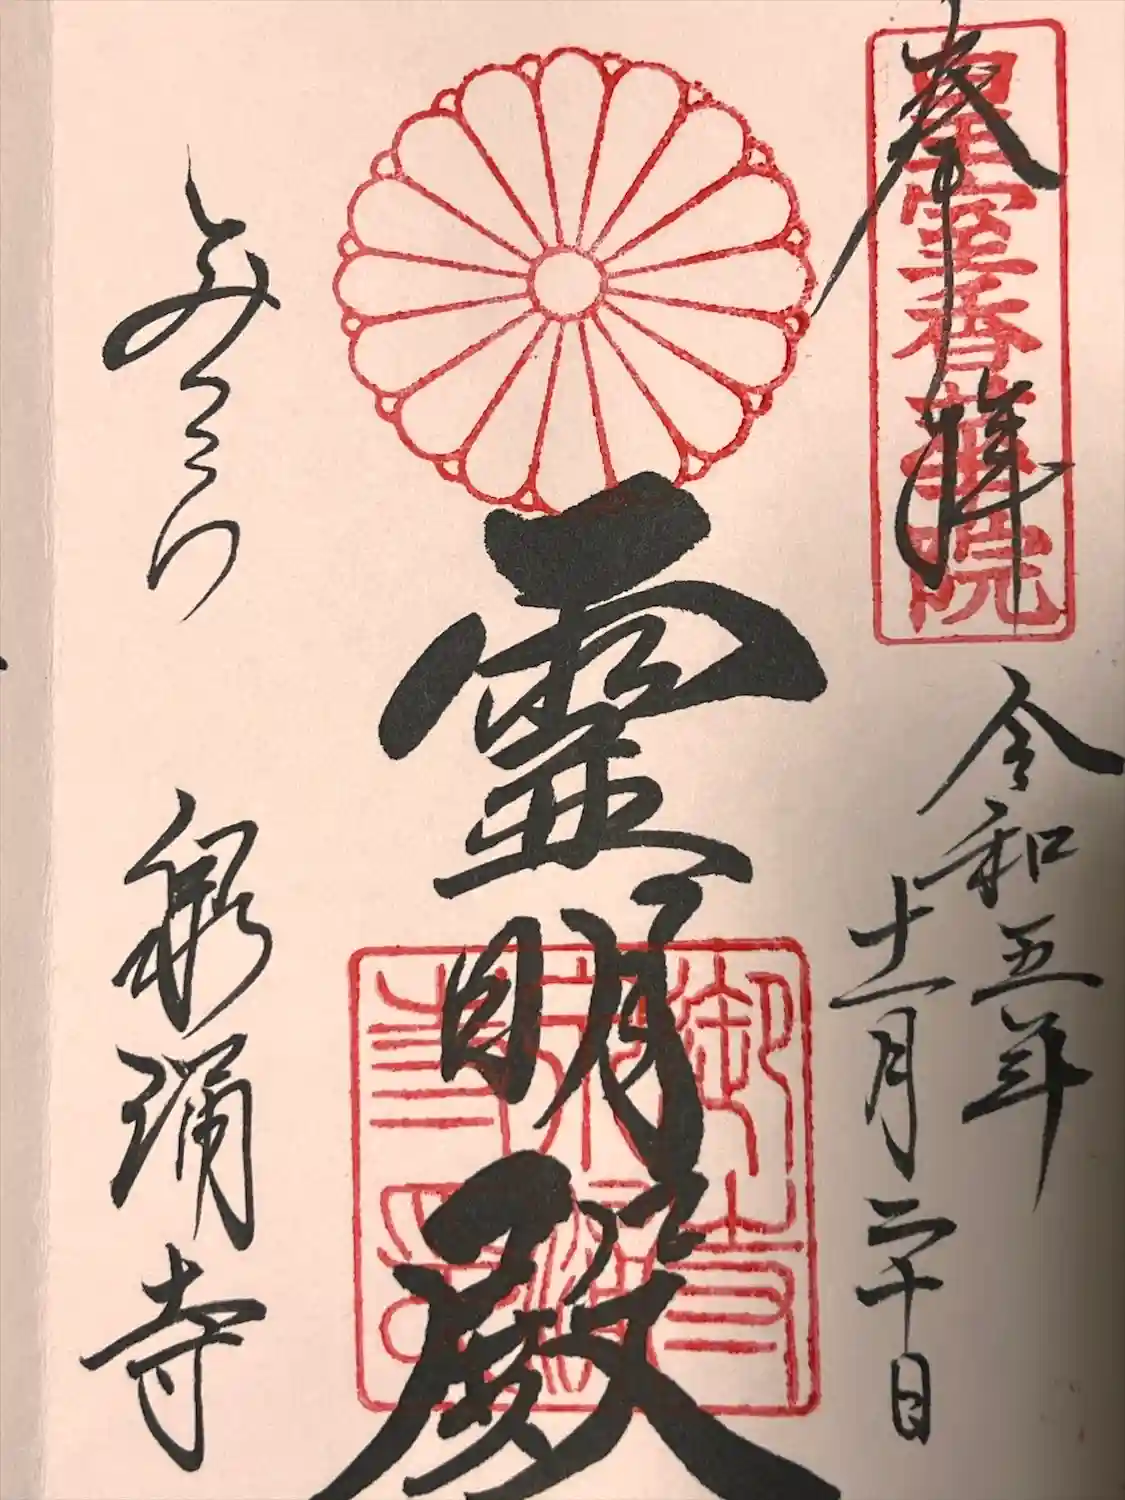 奉拝
皇室香華院
令和五年
十一月二十日
霊明殿
御寺泉涌寺
みてら
泉涌寺